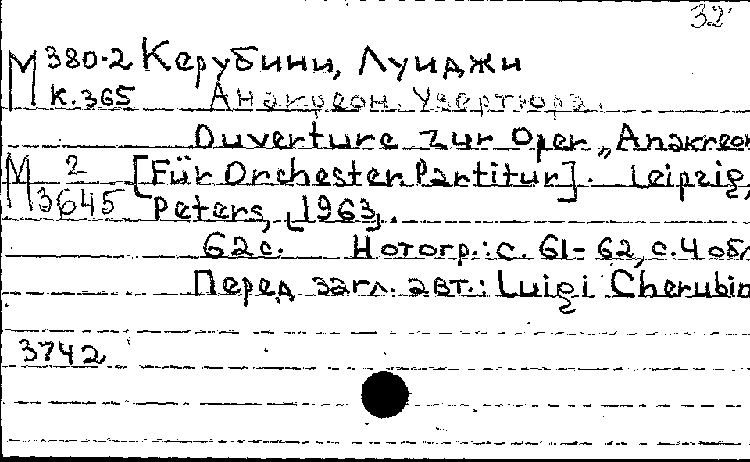 32
М 380-2 Керубини, Луиджи
к.365 Анакреон. Увертюра.
Ouverture zur Oper „Anakreon
М 2 [Für Orchester. Partitur]. Leipzig,
3645 Peters, [1963].
62 с. Нотогр.: с. 61-62, с. 4 обл
Перед загл. авт.: Luigi Cherubin
3742